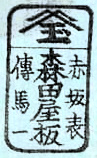 玉
赤坂表
傳馬一
森田屋板